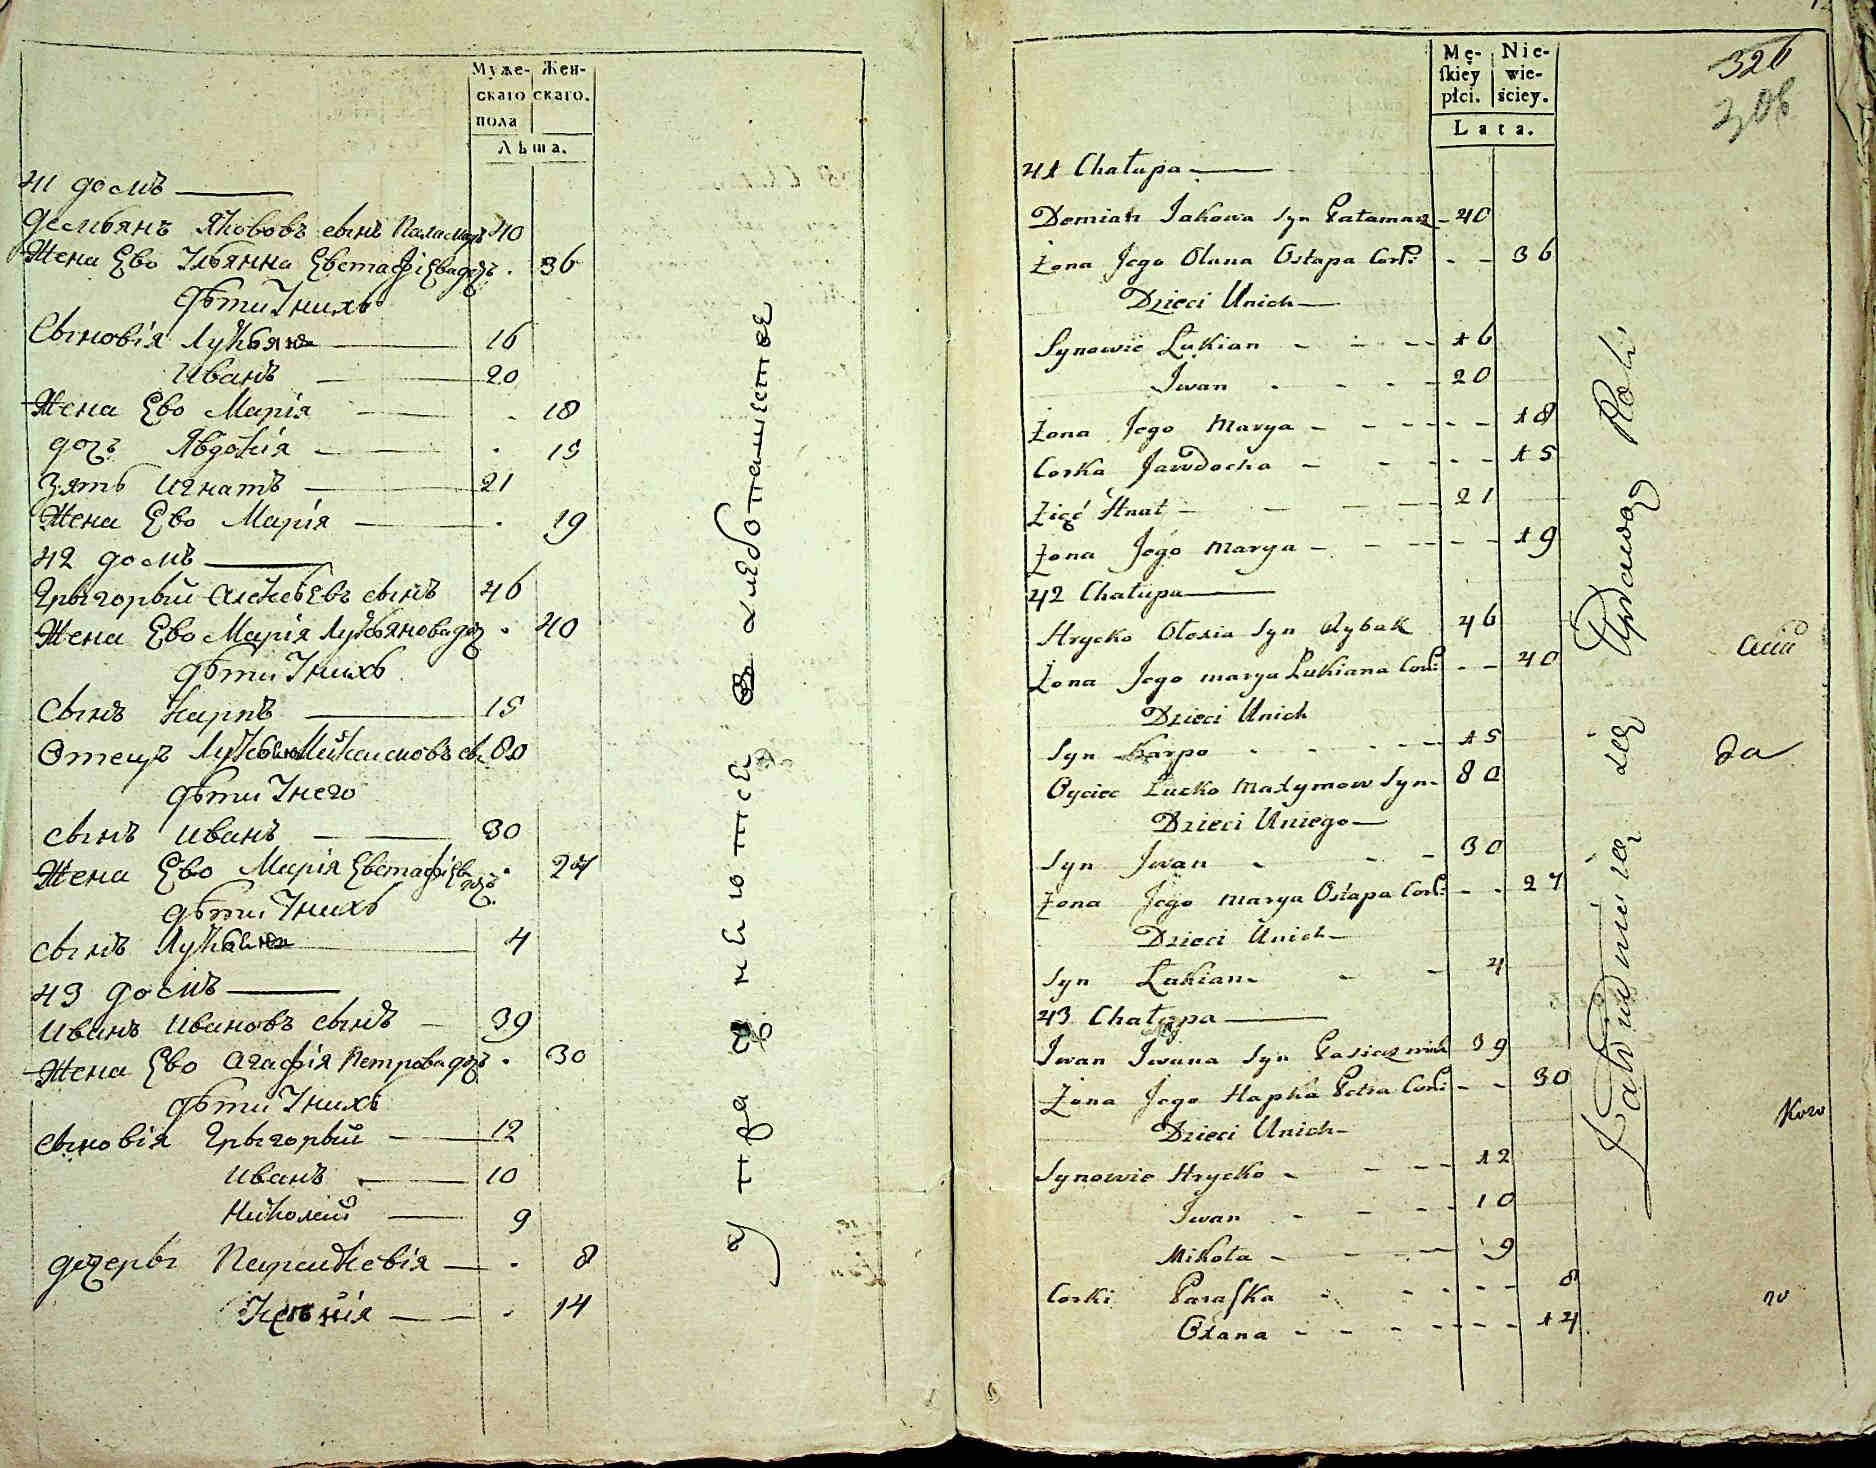 Муже- Жен-
скаго скаго.
пола
Лѣта.
41 домъ
Демьянъ Яковов сынъ Паламаръ 40
Жена Ево Ульянна Евстафіева доч. 36
дѣти Унихъ
Сыновія Лукьянъ 16
Иванъ 20
Жена Ево Марія 18
доч Явдокія 15
Зять Игнатъ 21
Жена Ево Марія 19
42 домъ
Грыгорый Алексѣевъ сынъ 46
Жена Ево Марія Лукьянова доч 40
дѣти Унихъ
Сынъ Карпъ 15
Отецъ Лукьянъ Максимовъ с. 80
дѣти Унего
сынъ Иванъ 30
Жена Ево Марія Евстафіев доч. 27
дѣти Унихъ
сынъ Лукьянъ 4
43 домъ
Иванъ Ивановъ сынъ 39
Жена Ево Агафія Петрова доч 30
дѣти Унихъ
сыновія Грыгорый 12
Иванъ 10
Николай 9
дочеры Параскевія 8
Ксенія 14
Упражняются в хлебопашестве
Mę- Nie-
skiey wie-
płci. ściey.
Lata.
326
41 Chałupa
Demian Jakowa Syn Pałamarz 40
Żona Jego Olana Ostapa Cor: 36
Dzieci Unich
Synowie Łukian 16
Iwan 20
Żona Jego Marya 18
Corka Jawdocha 15
Zięć Hnat 21
Żona Jego Marya 19
42 Chałupa
Hrycko Olexia Syn Rybak 46
Żona Jego Marya Łukiana Cor: 40
Dzieci Unich
Syn Karpo 15
Oyciec Łucko Maxymow Syn 80
Dzieci Uniego
Syn Iwan 30
Żona Jego Marya Ostapa Cor: 27
Dzieci Unich
Syn Łukian 4
43 Chałupa
Iwan Iwana Syn Pasiecznik 39
Żona Jego Hapka Petra Cor: 30
Dzieci Unich
Synowie Hrycko 12
Iwan 10
Mikoła 9
Corki Paraska 8
Oxana 14
Zatrudnienia się Uprawą Roli
да
Кого
го